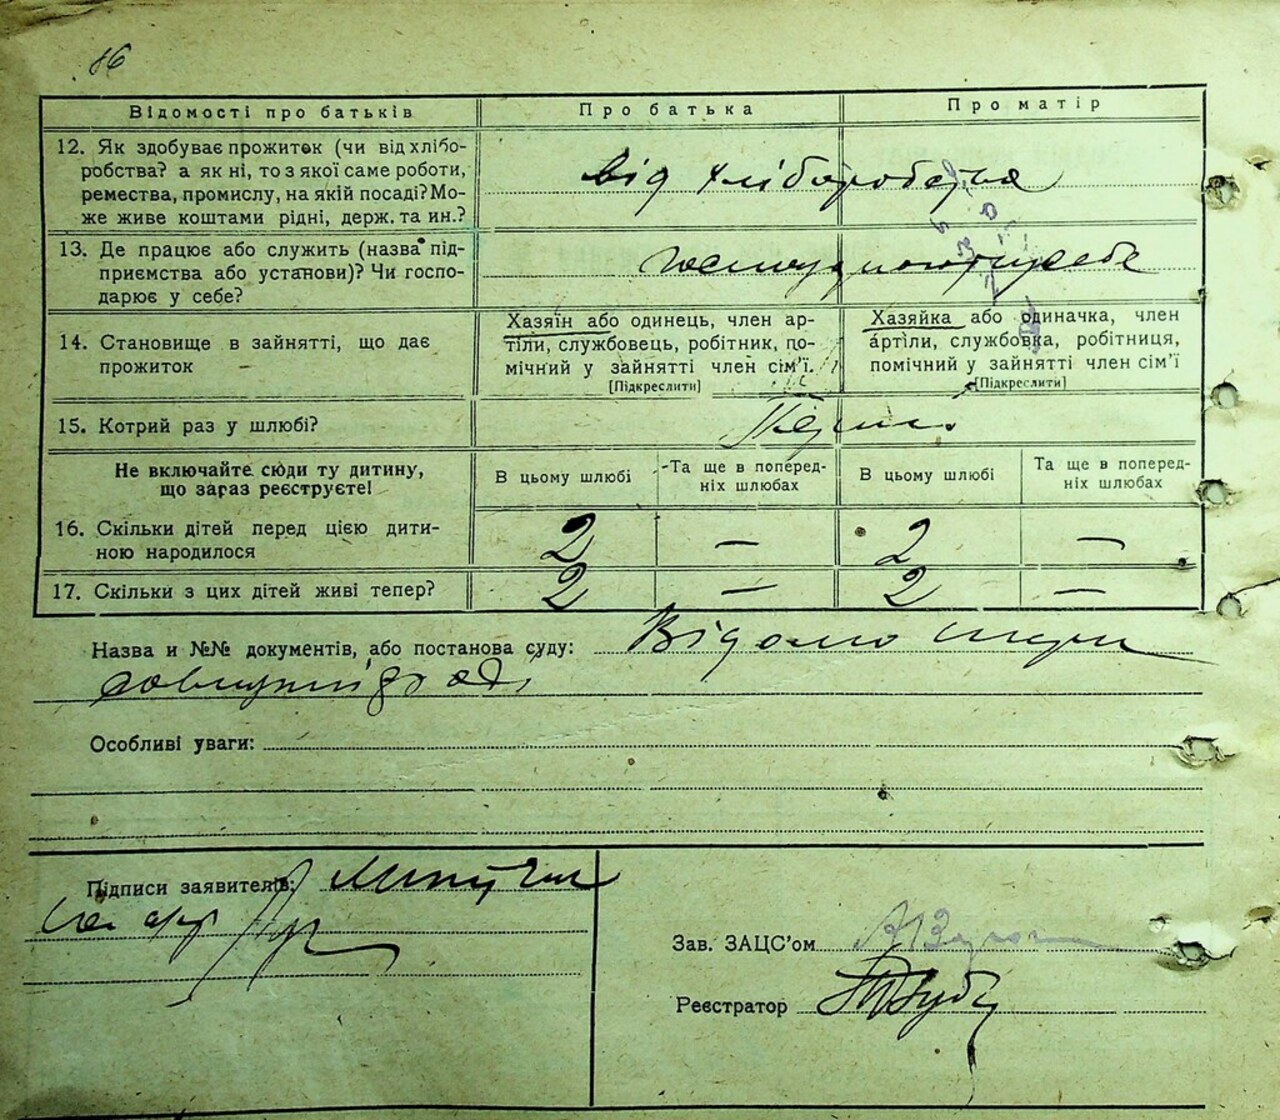 16
Відомості про батьків
Про батька
Про матір
12. Як здобуває прожиток (чи від хлібо-
робства? а як ні, то з якої саме роботи,
ремества, промислу, на якій посаді? Мо-
же живе коштами рідні, держ. та ин.?
від хліборобства
13. Де працює або служить (назва під-
приємства або установи)? Чи госпо-
дарює у себе?
у себе
14. Становище в зайнятті, що дає
прожиток
Хазяїн або одинець, член ар-
тіли, службовець, робітник, по-
мічний у зайнятті член сім'ї.
[Підкреслити]
Хазяйка або одиначка, член
артіли, службовка, робітниця,
помічний у зайнятті член сім'ї
[Підкреслити]
15. Котрий раз у шлюбі?
Не включайте сюди ту дитину,
що зараз реєструєте!
В цьому шлюбі
Та ще в поперед-
ніх шлюбах
В цьому шлюбі
Та ще в поперед-
ніх шлюбах
16. Скільки дітей перед цією дити-
ною народилося
2 — 2 —
17. Скільки з цих дітей живі тепер?
2 — 2 —
Назва и №№ документів, або постанова суду:
Особливі уваги:
Підписи заявителів:
Зав. ЗАЦС'ом
Реєстратор